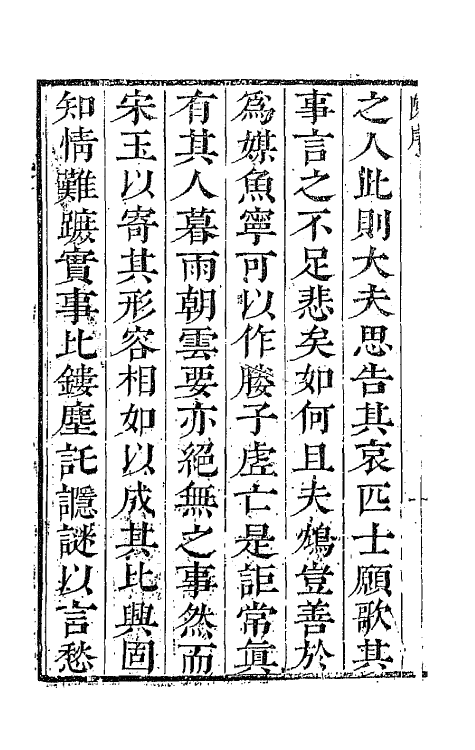 之人此則大夫思告其哀匹士願歌其
事言之不足悲矣如何且夫鴆豈善於
爲媒魚寧可以作媵子虛亡是詎常眞
有其人暮雨朝雲要亦絕無之事然而
宋玉以寄其形容相如以成其比興固
知情難蹠實事比鏤塵託讔謎以言愁